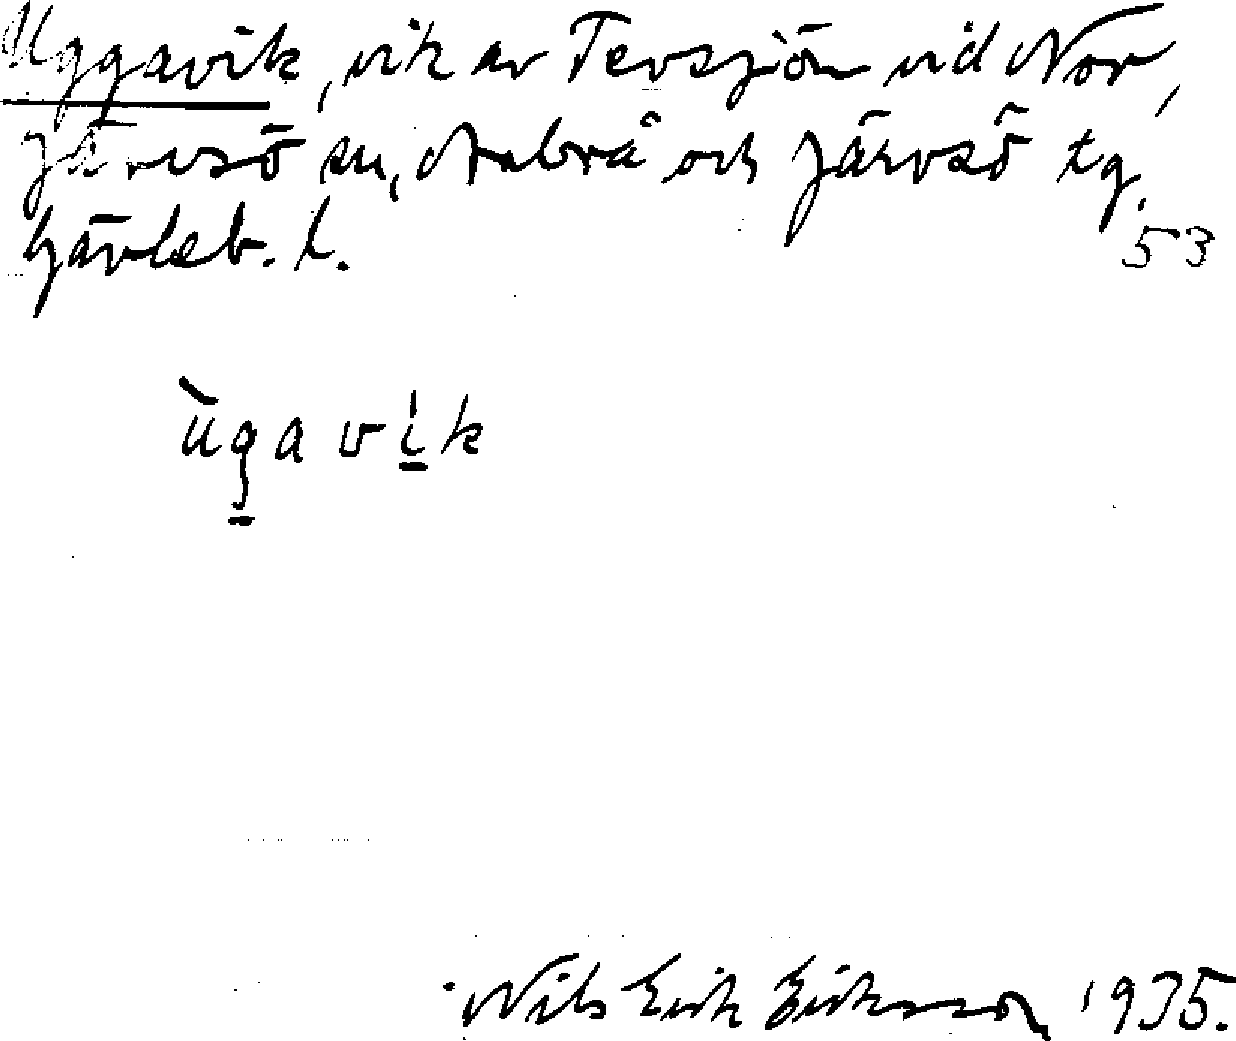 Uggavik, vik av Tevsjön vid Nor,
Järvsö sn, Arbrå och Järvsö tg.
Gävleb. l.
53
ùgavik
Nils Erik Eriksson 1935.